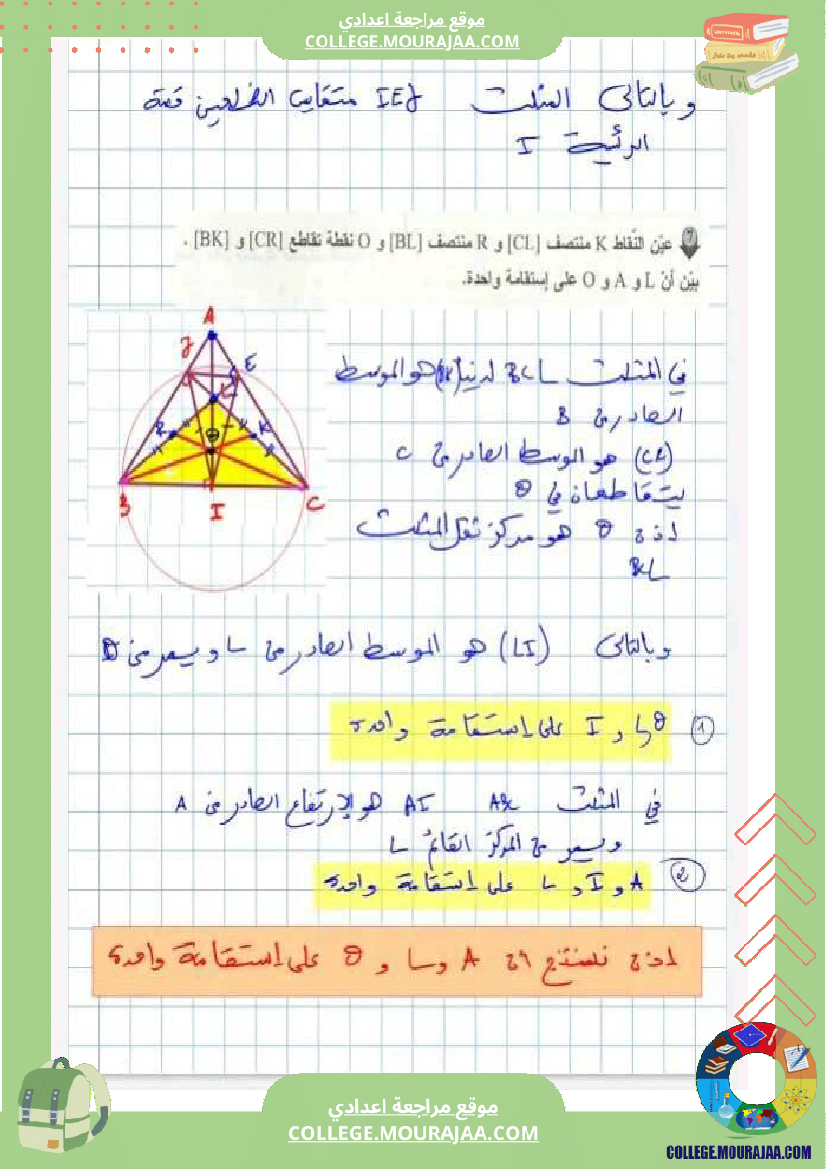 موقع مراجعة اعدادي
COLLEGE.MOURAJAA.COM
وبالتالي المثلث IEJ متقايس الضلعين قمته
الرئيسية I
7 عيّن النّقاط K منتصف [CL] و R منتصف [BL] و O نقطة تقاطع [CR] و [BK] .
بيّن أنّ L و A و O على إستقامة واحدة.
A
J
E
L
R
K
O
B
I
C
في المثلث BCL لدينا (BK) هو الموسط
الصادر من B
(CR) هو الموسط الصادر من C
يتقاطعان في O
اذن O هو مركز ثقل المثلث
BCL
وبالتالي (LI) هو الموسط الصادر من L ويمر من O
O و L و I على إستقامة واحدة 1
في المثلث ABC AI هو الإرتفاع الصادر من A
ويمر من المركز القائم L
A و I و L على إستقامة واحدة 2
اذن نستنتج ان A و L و O على إستقامة واحدة
موقع مراجعة اعدادي
COLLEGE.MOURAJAA.COM
COLLEGE.MOURAJAA.COM